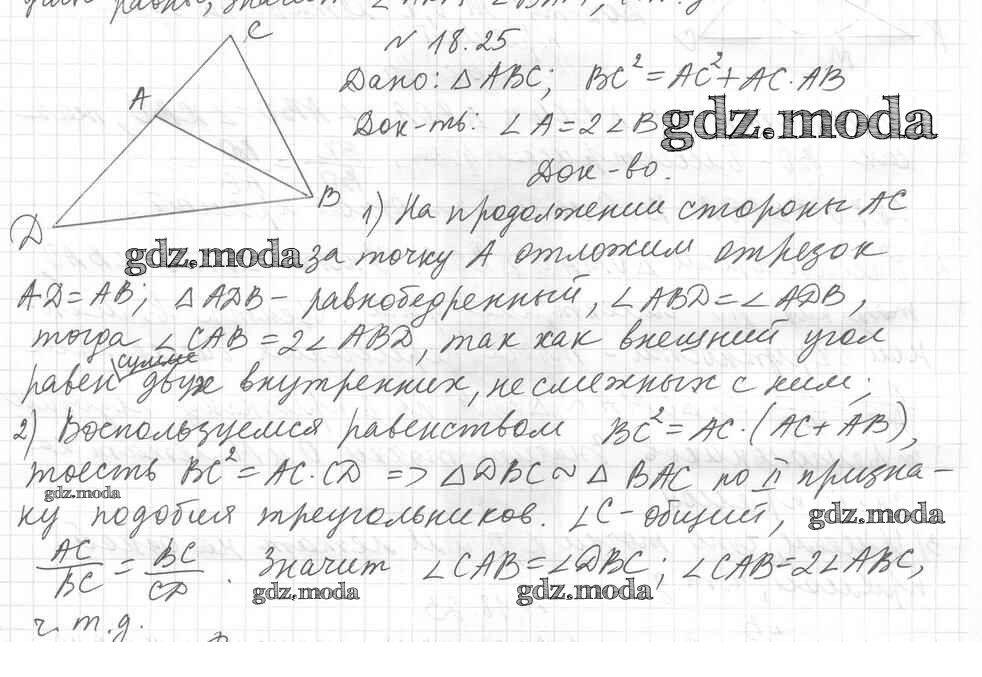 C
N 18.25
Дано: △ABC; BC² = AC² + AC · AB
A
Док-ть: ∠A = 2∠B
gdz.moda
Док-во.
B
1) На продолжении стороны AC
D
gdz.moda
за точку A отложим отрезок
AD = AB; △ADB - равнобедренный, ∠ABD = ∠ADB,
тогда ∠CAB = 2∠ABD, так как внешний угол
сумме
равен двух внутренних, не смежных с ним;
2) Воспользуемся равенством BC² = AC · (AC + AB),
тоесть BC² = AC · CD => △DBC ~ △BAC по II призна-
gdz.moda
ку подобия треугольников. ∠C - общий,
gdz.moda
AC/BC = BC/CD. Значит ∠CAB = ∠DBC; ∠CAB = 2∠ABC,
gdz.moda
gdz.moda
ч. т. д.